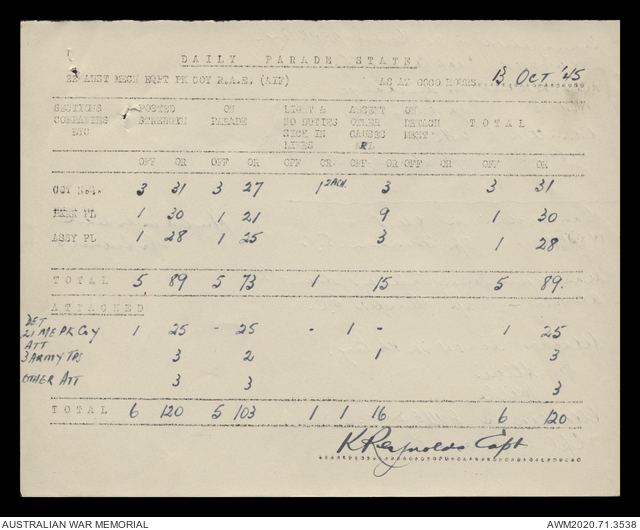 DAILY PARADE STATE
22 AUST MECH EQPT PK COY R.A.E. (AIF) AS AT 0800 HOURS. 13 OCT '45
SECTIONS POSTED ON LIGHT & ABSENT ON
COMPANIES STRENGTH PARADE NO DUTIES OTHER DETACH T O T A L
ETC SICK IN CAUSES MENT
LINES
OFF OR OFF OR OFF OR OFF OR OFF OR OFF OR
COY H.Q. 3 31 3 27 1 3 3 31
PL 1 30 1 21 9 1 30
ASSY PL 1 28 1 25 3 1 28
T O T A L 5 89 5 73 1 15 5 89.
A T T A C H E D
DET
21 ME PK COY 1 25 - 25 - 1 - 1 25
ATT
3 ARMY TPS 3 2 1 3
OTHER ATT 3 3 3
T O T A L 6 120 5 103 1 1 16 6 120
K Reynolds Capt
AUSTRALIAN WAR MEMORIAL AWM2020.71.3538